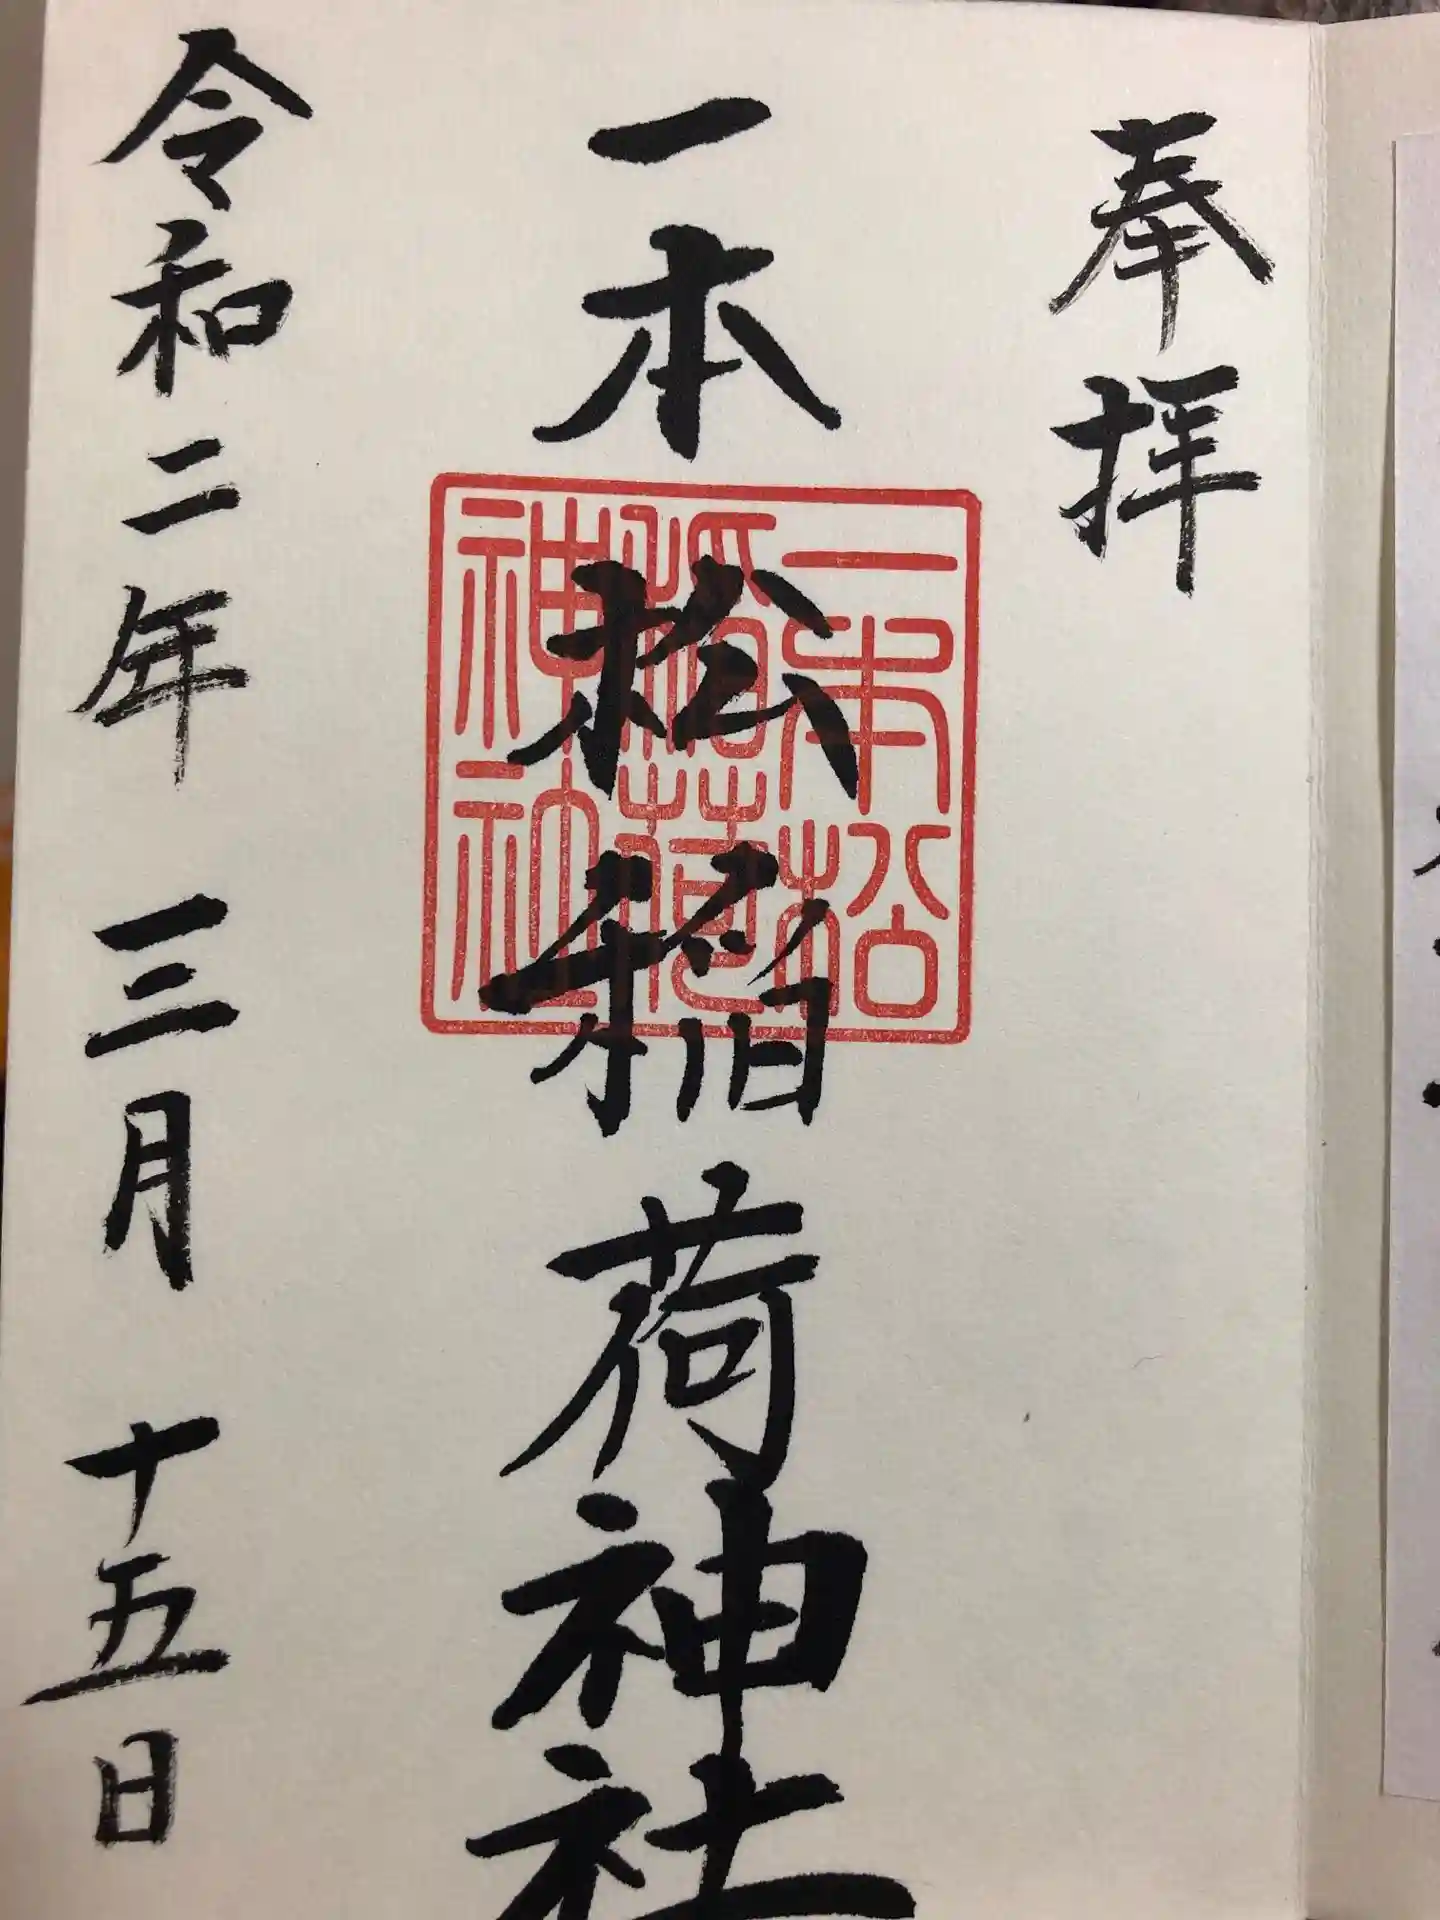 奉拝
一本松稲荷神社
一本松
稲荷
神社
令和二年三月十五日